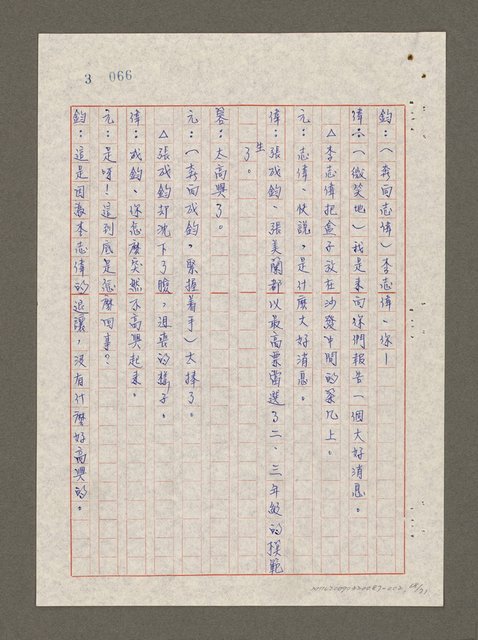 3 066
鈞：（奔向志偉）李志偉、你—
偉：（微笑地）我是來向你們報告一個大好消息。
△李志偉把盒子放在沙發中間的茶几上。
元：志偉、快說，是什麼大好消息。
偉：張成鈞、張美蘭都以最高票當選了二、三年級的模範
生了。
蓉：太高興了。
元：（奔向成鈞，緊握着手）太棒了。
△張成鈞却沈下了臉，沮喪的樣子。
偉：成鈞、你怎麼突然不高興起來。
元：是呀！這到底是怎麼回事？
鈞：這是因為李志偉的退讓，沒有什麼好高興的。